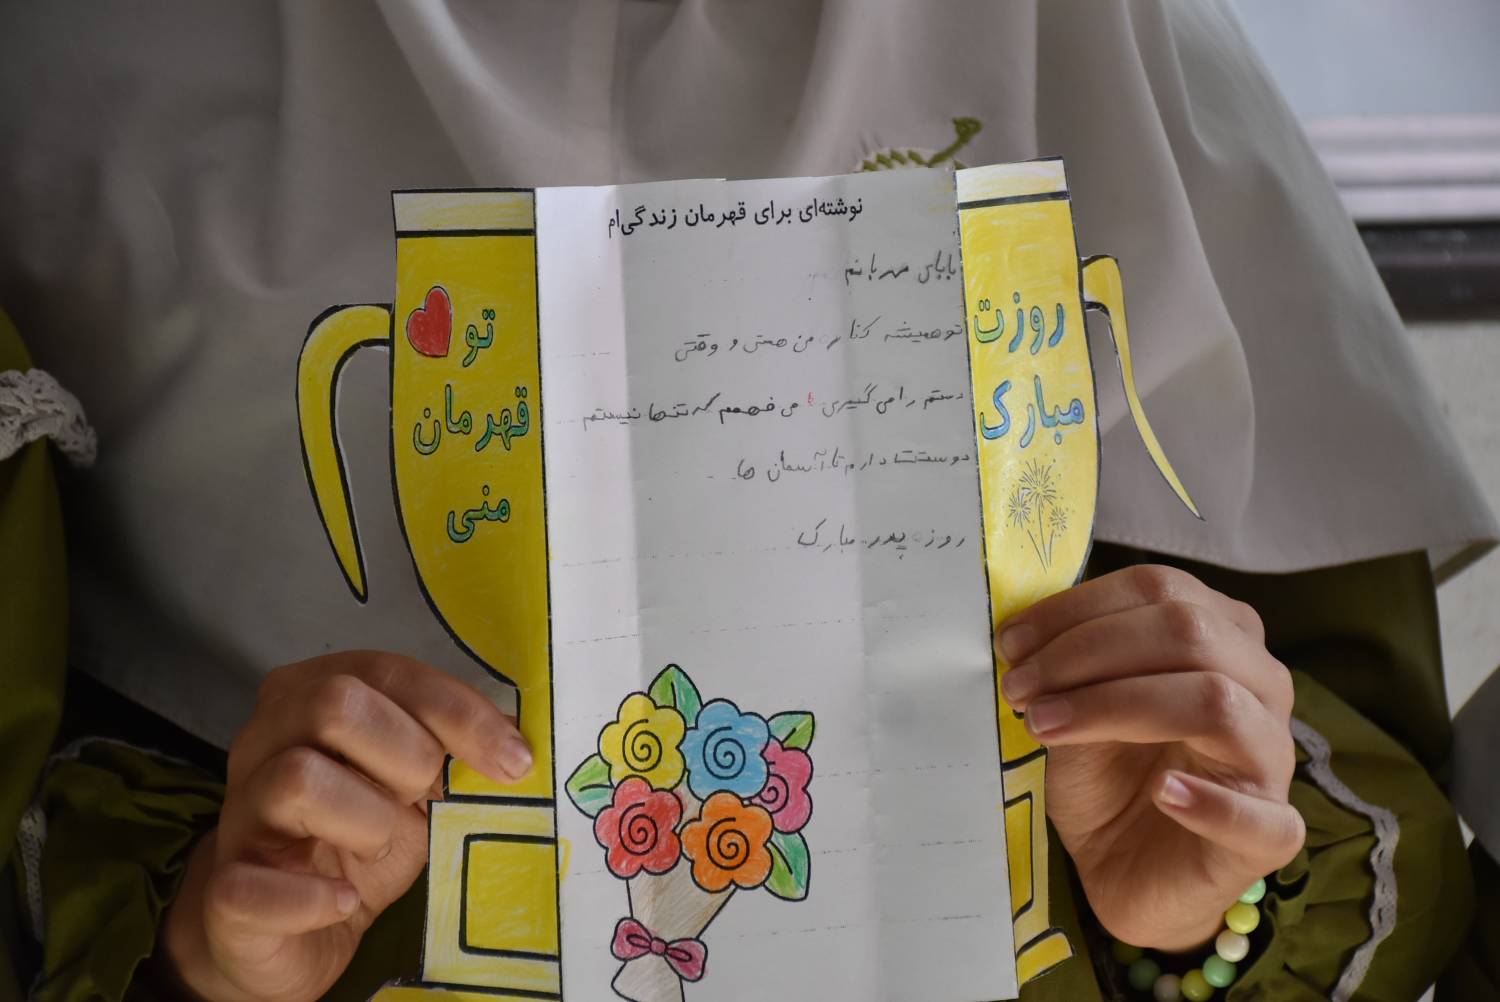 نوشته‌ای برای قهرمان زندگی‌ام
بابای مهربانم
تو همیشه کنار من هستی و وقتی
دستم را می گیری می فهمم که تنها نیستم
دوستت دارم تا آسمان ها.
روز پدر مبارک
روزت
مبارک
تو
قهرمان
منی